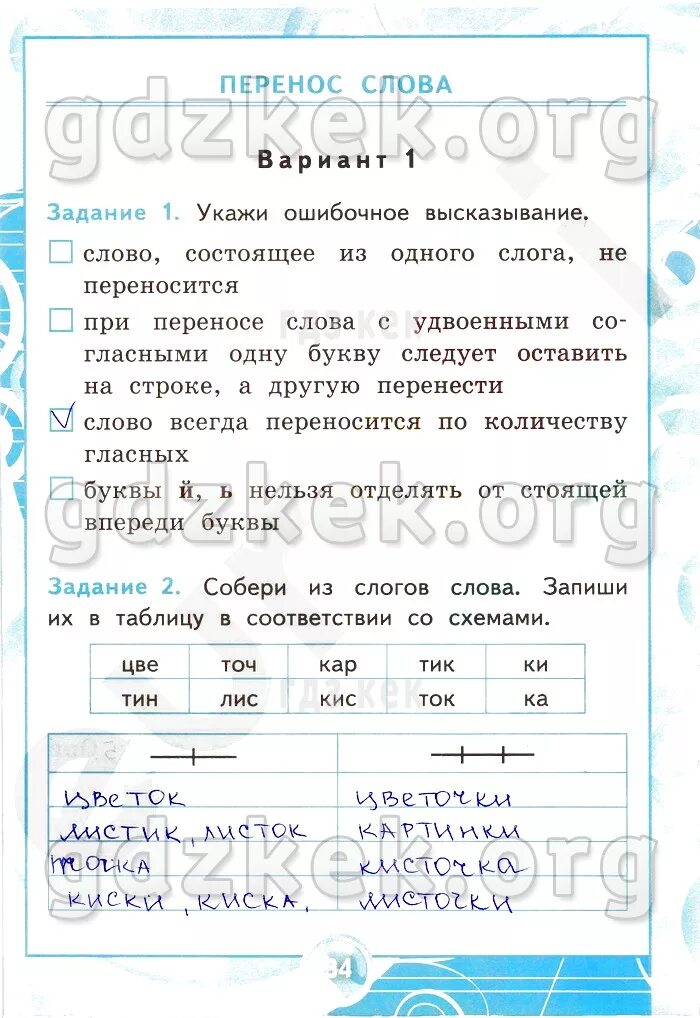 ПЕРЕНОС СЛОВА
gdzkek.org
Вариант 1
Задание 1. Укажи ошибочное высказывание.
слово, состоящее из одного слога, не
переносится
гдз кек
при переносе слова с удвоенными со-
гласными одну букву следует оставить
на строке, а другую перенести
слово всегда переносится по количеству
гласных
буквы й, ь нельзя отделять от стоящей
впереди буквы
gdzkek.org
Задание 2. Собери из слогов слова. Запиши
их в таблицу в соответствии со схемами.
цве точ кар тик ки
тин лис кис ток ка
гдз кек
цветок цветочки
листик, листок картинки
gdzkek.org
точка кисточка
киски, киска. листочки
34